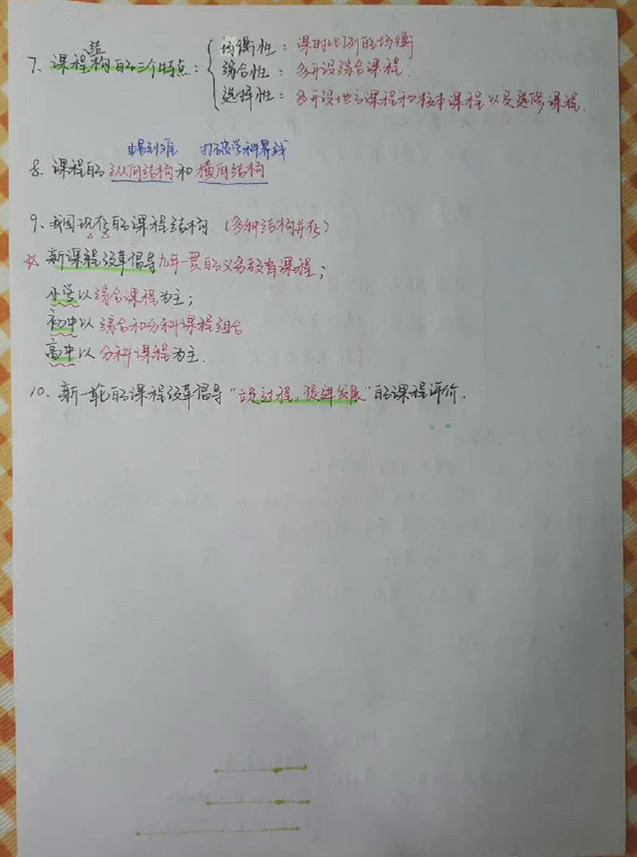 均衡性：课时比例的均衡
7、课程结构的三个特点：综合性：多开设综合课程.
选择性：多开设地方课程和校本课程以及选修课程.
由易到难 打破学科界线
8、课程的纵向结构和横向结构
9、我国现在的课程结构（多种结构并存）
☆新课程改革倡导九年一贯的义务教育课程；
小学以综合课程为主；
初中以综合和分科课程组合
高中以分科课程为主.
10、新一轮的课程改革倡导“立足过程，促进发展”的课程评价.